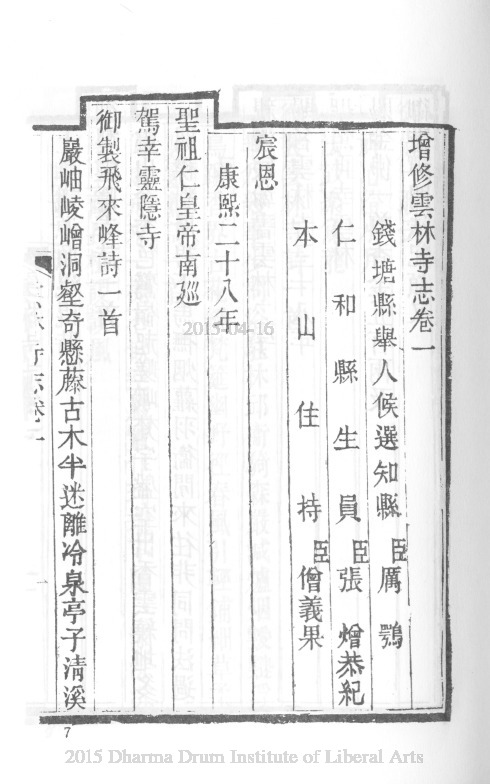 增修雲林寺志卷一
錢塘縣舉人候選知縣臣厲鶚
仁和縣生員臣張熷恭紀
本山住持臣僧義果
宸恩
康熙二十八年
聖祖仁皇帝南廵
駕幸靈隱寺
御製飛來峰詩一首
巖岫崚嶒洞壑奇懸藤古木半迷離冷泉亭子清溪
寺志卷一
一
7
2015-04-16
2015 Dharma Drum Institute of Liberal Arts